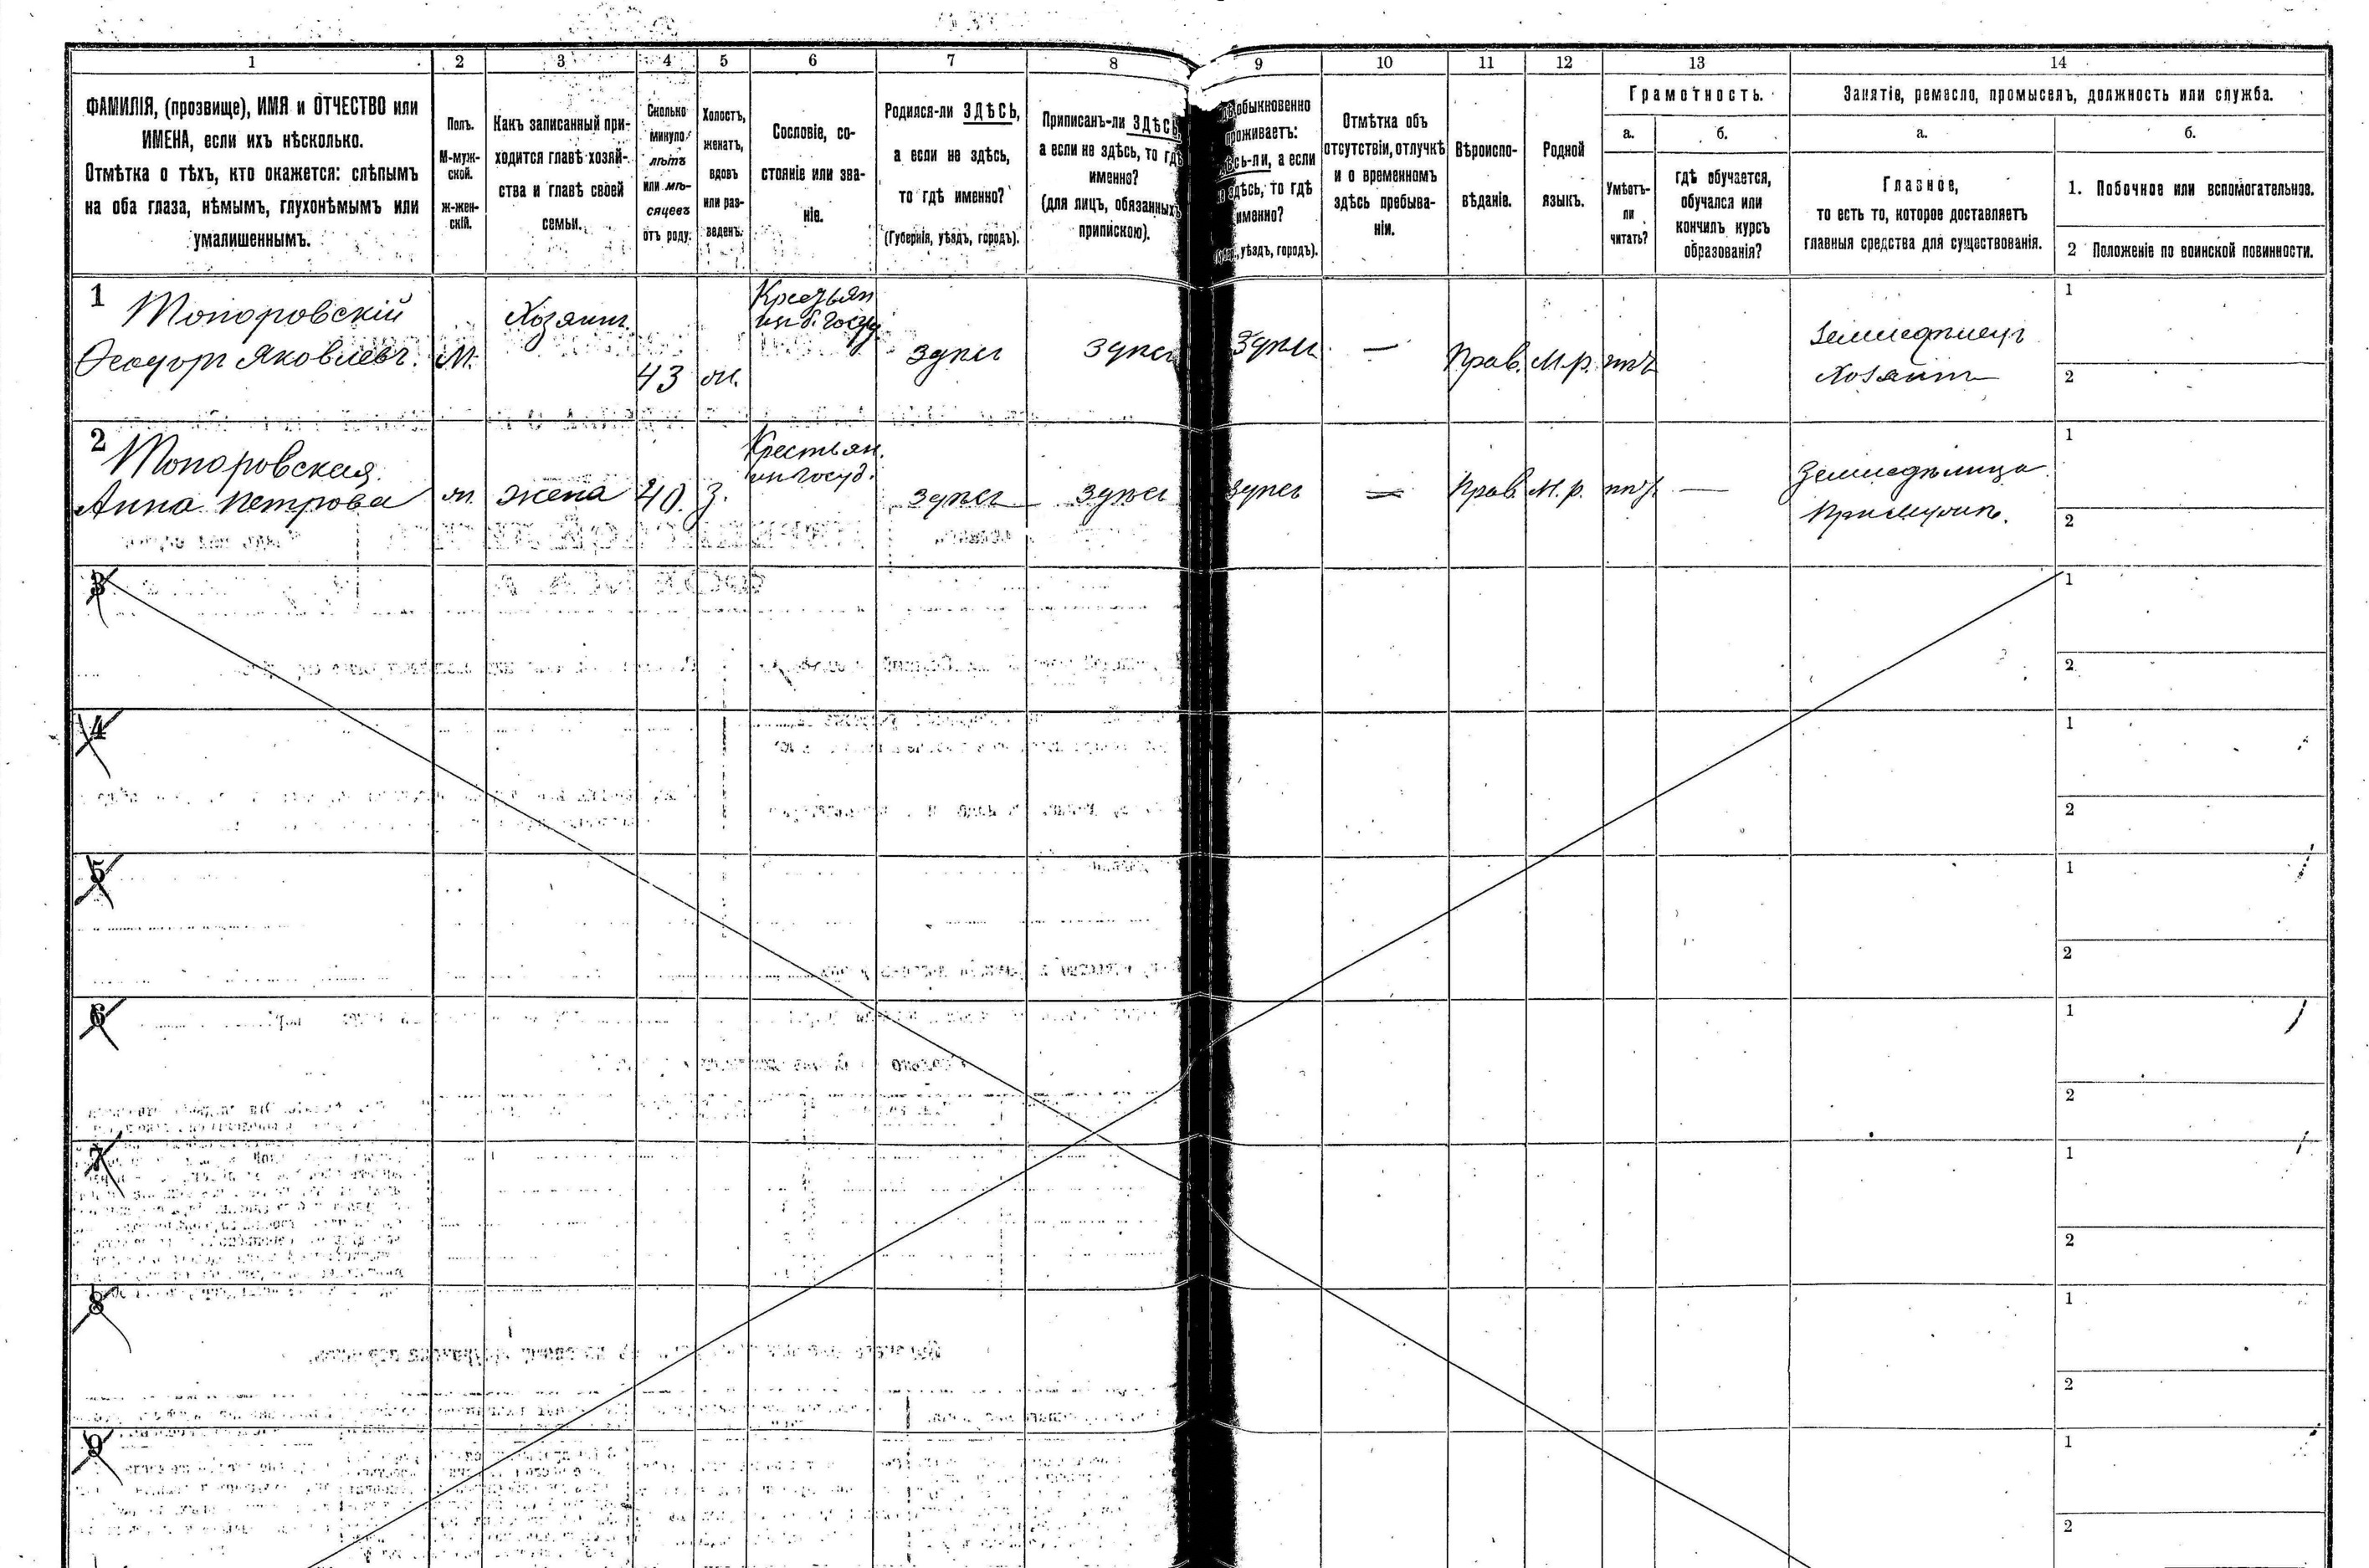 1 2 3 4 5 6 7 8 9 10 11 12 13 14
ФАМИЛІЯ, (прозвище), ИМЯ и ОТЧЕСТВО или
ИМЕНА, если ихъ нѣсколько.
Отмѣтка о тѣхъ, кто окажется: слѣпымъ
на оба глаза, нѣмымъ, глухонѣмымъ или
умалишеннымъ.
Полъ.
М-муж-
ской.
Ж-жен-
скій.
Какъ записанный при-
ходится главѣ хозяй-
ства и главѣ своей
семьи.
Сколько
минуло
лѣтъ
или мѣ-
сяцевъ
отъ роду.
Холостъ,
женатъ,
вдовъ
или раз-
веденъ.
Сословіе, со-
стояніе или зва-
ніе.
Родился-ли ЗДѢСЬ,
а если не здѣсь,
то гдѣ именно?
(Губернія, уѣздъ, городъ).
Приписанъ-ли ЗДѢСЬ,
а если не здѣсь, то гдѣ
именно?
(для лицъ, обязанныхъ
припискою).
обыкновенно
проживаетъ:
здѣсь-ли, а если
не здѣсь, то гдѣ
именно?
уѣздъ, городъ).
Отмѣтка объ
отсутствіи, отлучкѣ
и о временномъ
здѣсь пребыва-
ніи.
Вѣроиспо-
вѣданіе.
Родной
языкъ.
Грамотность.
а.
Умѣетъ-
ли
читать?
б.
гдѣ обучается,
обучался или
кончилъ курсъ
образованія?
Занятіе, ремесло, промыселъ, должность или служба.
а.
Главное,
то есть то, которое доставляетъ
главныя средства для существованія.
б.
1. Побочное или вспомогательное.
2 Положеніе по воинской повинности.
1 Топоровскій
Ѳеодоръ Яковлевъ. М.
Хозяинъ.
43 ж.
Крестьян
из б. госуд
здѣсь здѣсь здѣсь — Прав. М.р. нѣтъ
Земледѣлецъ
Хозяинъ
1
2
2 Топоровская
Анна Петрова ж. жена 40. з.
Крестьян.
из госуд.
здѣсь здѣсь здѣсь — Прав М.р. нѣтъ —
Земледѣлица
При мужѣ.
1
2
3
1
2
4
1
2
5
1
2
6
1
2
7
1
2
8
1
2
9
1
2